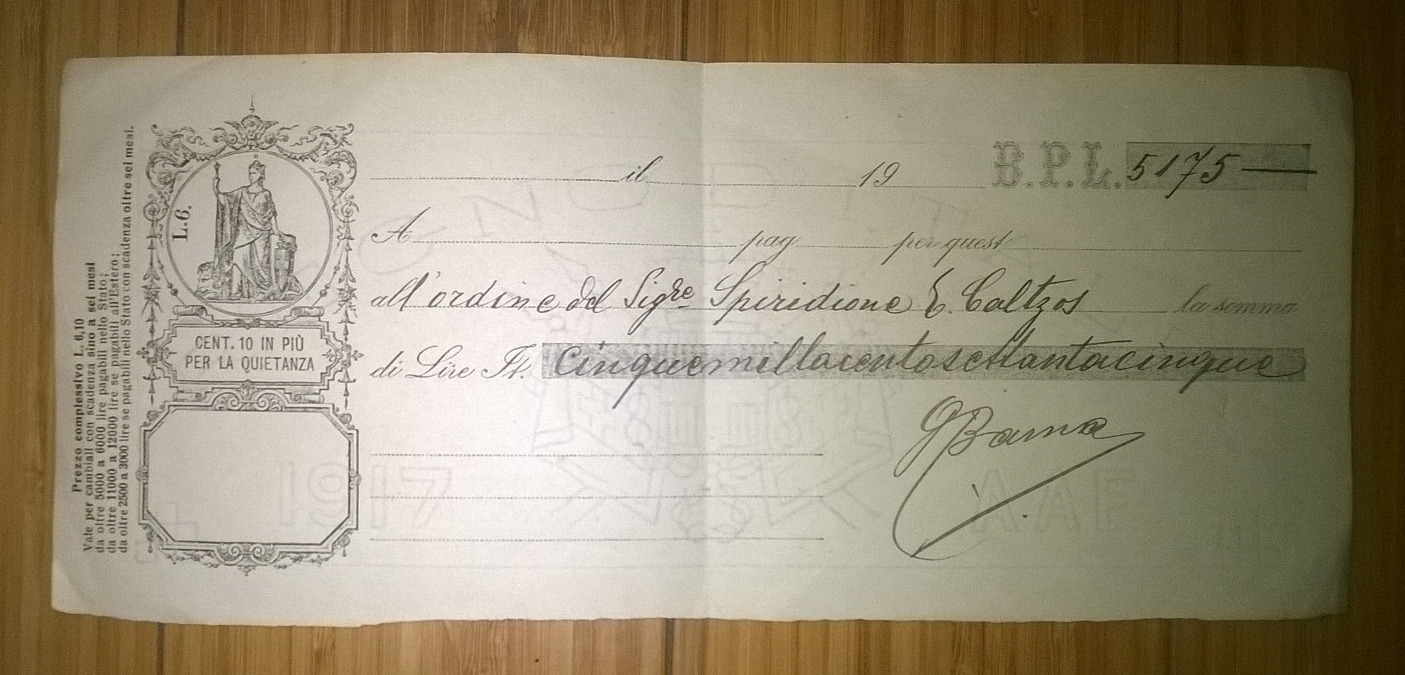 il 19 B.P.L. 5175
A pag per quest
all'ordine del Sigre Spiridione C. Caltzos la somma
di Lire It. Cinquemillacentosettantacinque
GBama
L.6.
CENT. 10 IN PIÙ
PER LA QUIETANZA
Prezzo complessivo L. 6,10
Vale per cambiali con scadenza sino a sei mesi
da oltre 5000 a 6000 lire pagabili nello Stato;
da oltre 11000 a 12000 lire se pagabili all'Estero;
da oltre 2500 a 3000 lire se pagabili nello Stato con scadenza oltre sei mesi.
1917